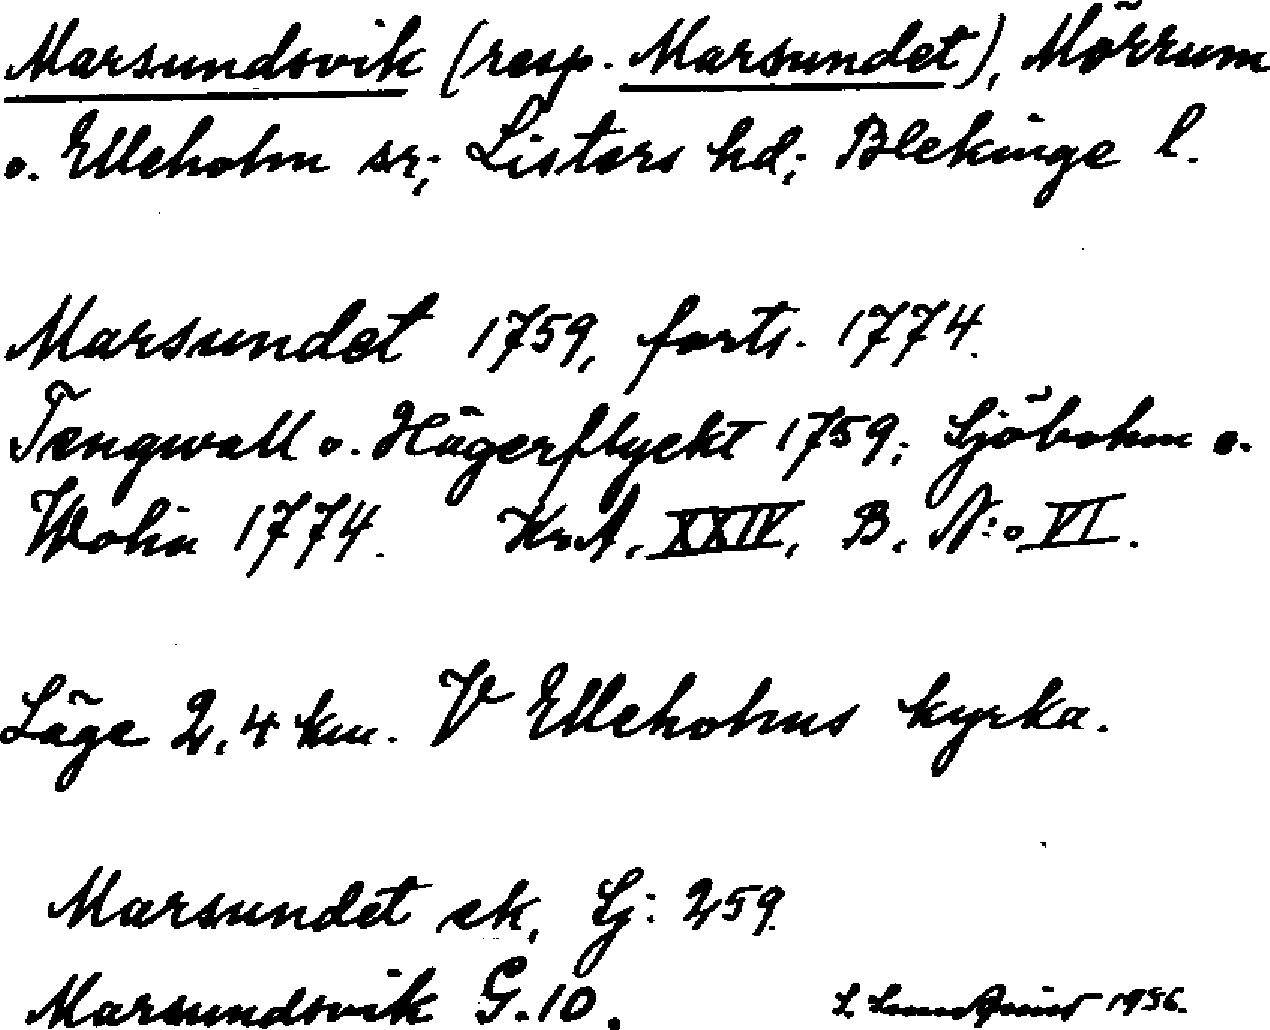 Marsundsvik (resp. Marsundet), Mörrum
o. Elleholm sr; Listers hd; Blekinge l.
Marsundet 1759, forts. 1774.
Tengwall o. Hägerflyckt 1759; Sjöbohm o.
Wohin 1774. Kr.A. XXIV, B. N:o VI.
Läge 2,4 km. V Elleholms kyrka.
Marsundet ek, Lj: 259
Marsundsvik G. 10.
1956.